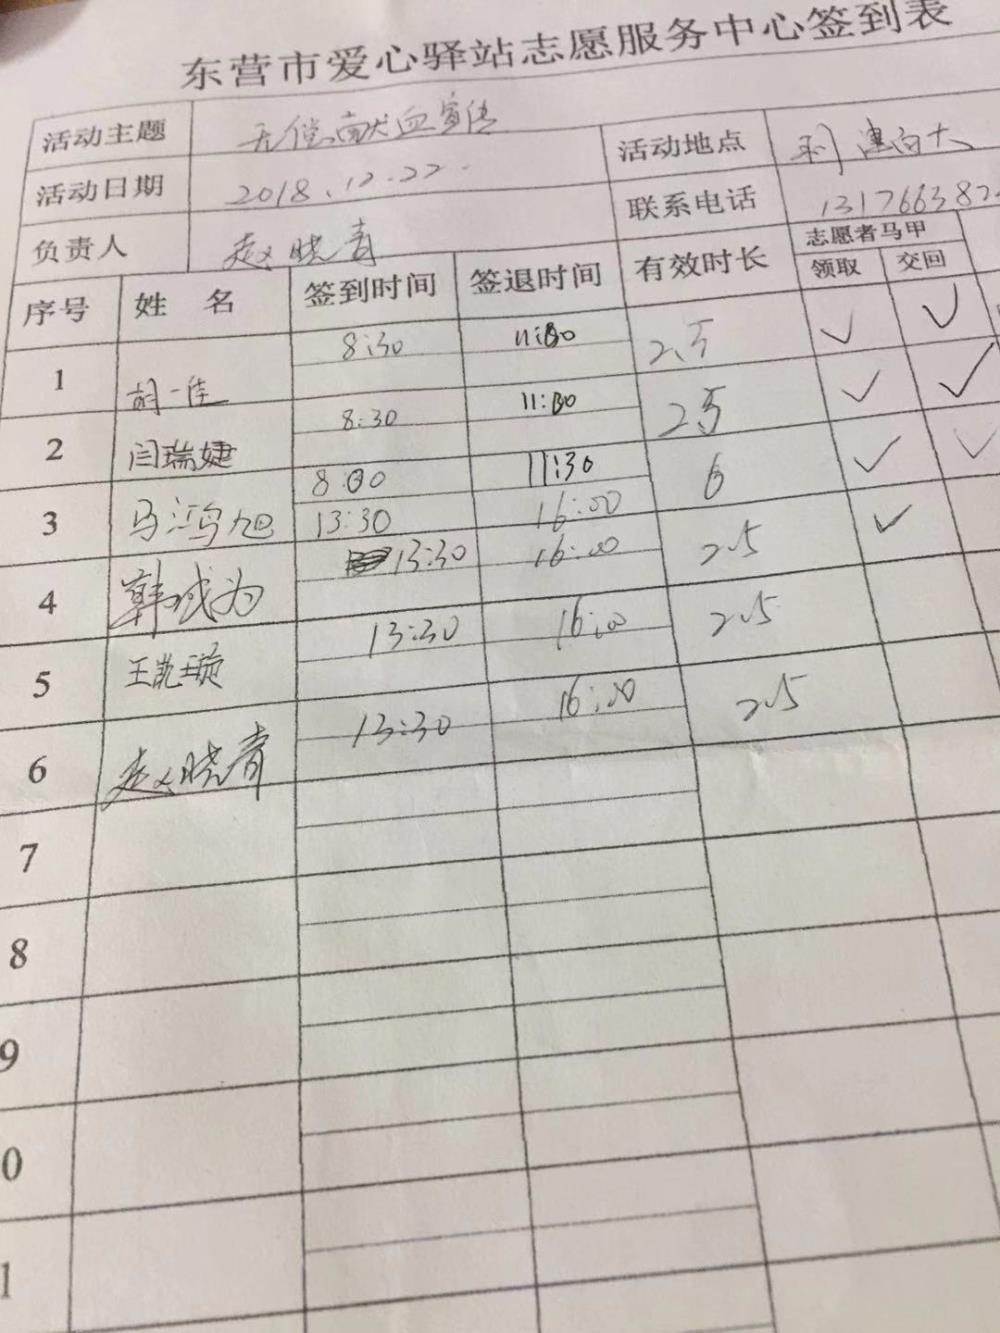 东营市爱心驿站志愿服务中心签到表
活动主题 无偿献血宣传 活动地点 利津百大
活动日期 2018.12.22. 联系电话 131766382
负责人 赵晓青 志愿者马甲
序号 姓 名 签到时间 签退时间 有效时长 领取 交回
1 胡一佳 8:30 11:00 2.5 ✓ ✓
2 闫瑞婕 8:30 11:00 2.5 ✓ ✓
3 马鸿旭 8:00 11:30 6 ✓ ✓
13:30 16:00
4 韩成为 13:30 16:00 2.5 ✓
5 王凯璇 13:30 16:00 2.5
6 赵晓青 13:30 16:00 2.5
7
8
9
0
1